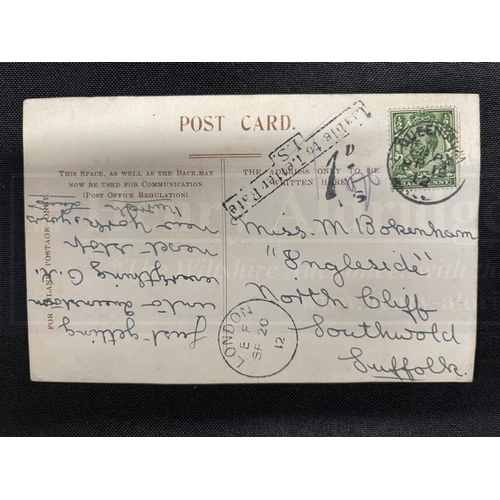 POST CARD.
THIS SPACE, AS WELL AS THE BACK, MAY
NOW BE USED FOR COMMUNICATION
(POST OFFICE REGULATION).
THE ADDRESS ONLY TO BE
WRITTEN HERE.
FOR INLAND POSTAGE ONLY
Liable to Letter Rate
I.S.
1D
HALFPENNY
QUEENSTOWN
LONDON
E F
SP 20
12
Just getting
into Queenstown
everything O.K.
next stop
New York
Miss M. Bokenham
"Engleside"
North Cliff
Southwold
Suffolk.